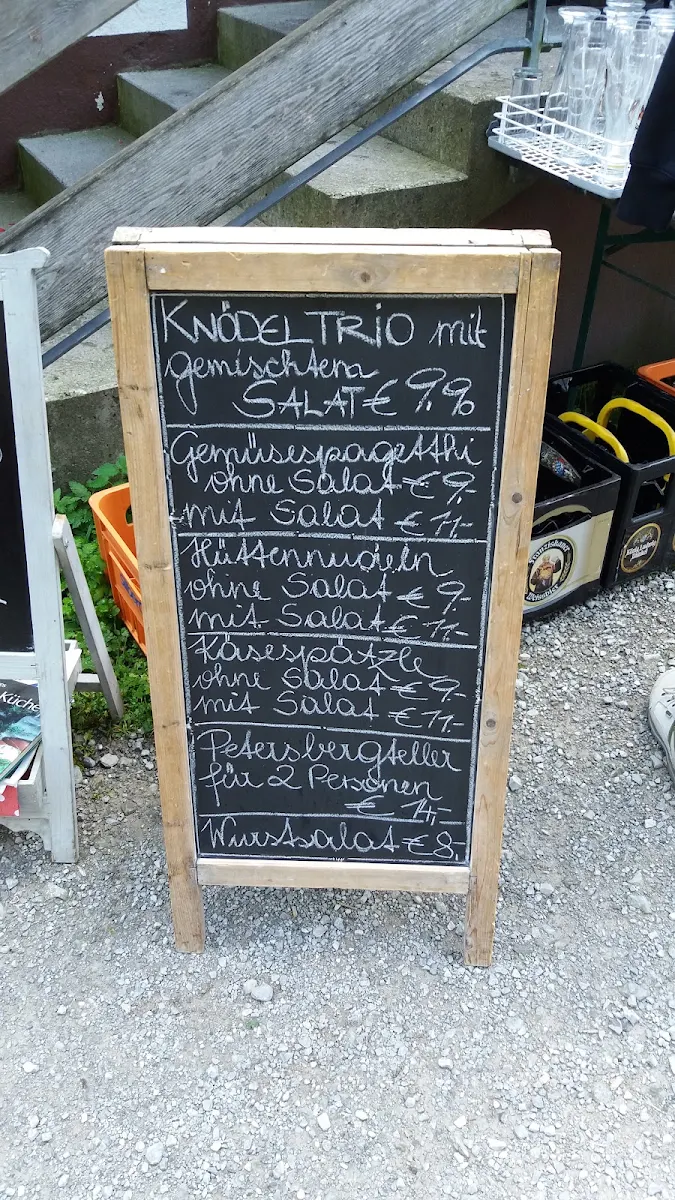 KNÖDELTRIO mit
gemischtem
SALAT € 9,90
Gemüsespagetthi
ohne Salat € 9,-
mit Salat € 11,-
Hüttennudeln
ohne Salat € 9,-
mit Salat € 11,-
Käsespätzle
ohne Salat € 9,-
mit Salat € 11,-
Petersbergteller
für 2 Personen
€ 14,-
Wurstsalat € 8,-
Küche